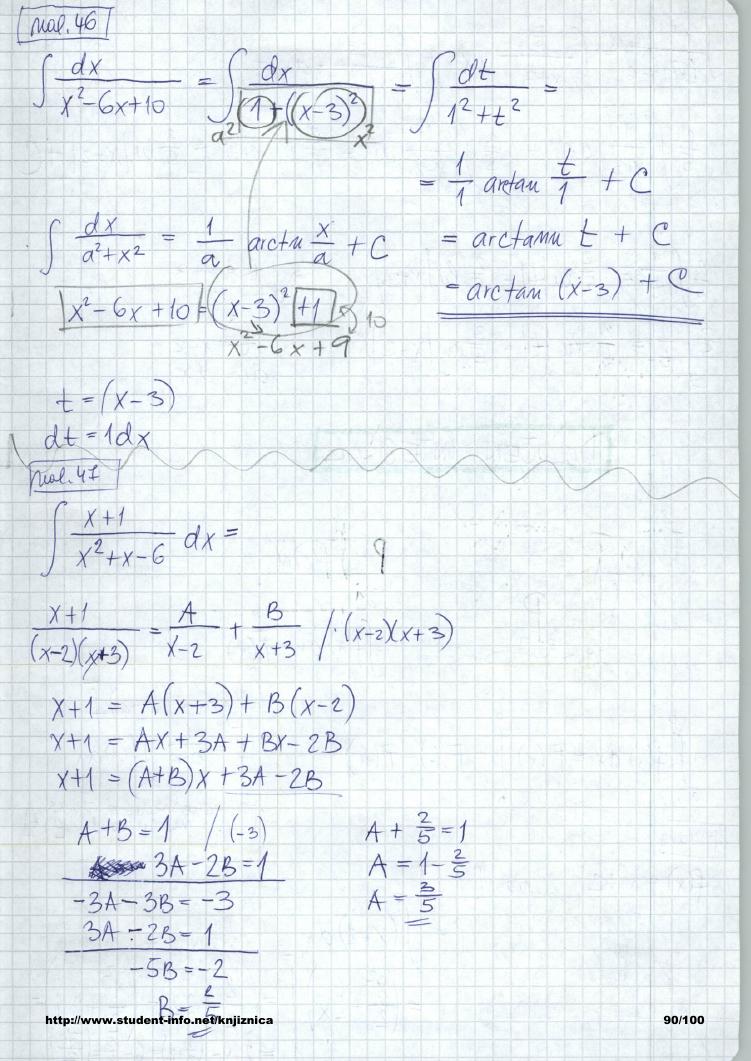 nal. 46
∫ dx / (x²-6x+10) = ∫ dx / (1+(x-3)²) = ∫ dt / (1²+t²) =
a² x²
= 1/1 arctan t/1 + C
∫ dx / (a²+x²) = 1/a arctn x/a + C
= arctann t + C
= arctan (x-3) + C
x²-6x+10 = (x-3)² +1 10
x²-6x+9
t = (x-3)
dt = 1dx
nal. 47
∫ (x+1) / (x²+x-6) dx =
9
(x+1) / ((x-2)(x+3)) = A / (x-2) + B / (x+3) /·(x-2)(x+3)
x+1 = A(x+3) + B(x-2)
x+1 = Ax + 3A + Bx - 2B
x+1 = (A+B)x + 3A - 2B
A+B = 1 /·(-3)
3A - 2B = 1
-3A - 3B = -3
3A - 2B = 1
-5B = -2
B = 2/5
A + 2/5 = 1
A = 1 - 2/5
A = 3/5
http://www.student-info.net/knjiznica 90/100